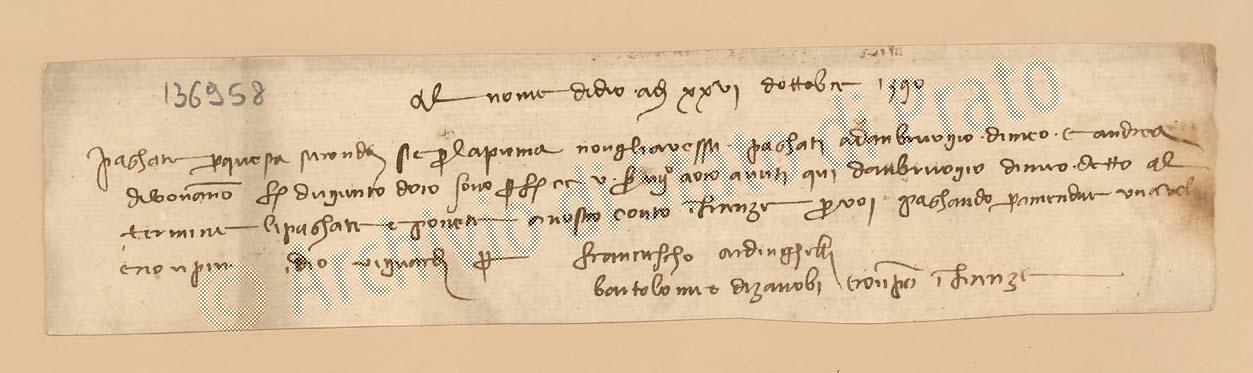 136958
Al nome didio adi xxvi dottobre 1390
paghate p questa seconda se p laprima nongliavessi paghati adanbruogio dimeo e andrea
dibonanno f dugiento doro sono p f cc v p auti qui danbruogio dimeo detto al
termine lipaghate e ponete a nostro conto i firenze p voi paghando p amendue una
e no piu idio vi guardi p francescho ardinghelli
bartolomeo dizanobi e conp i firenze
© Archivio di Stato di Prato